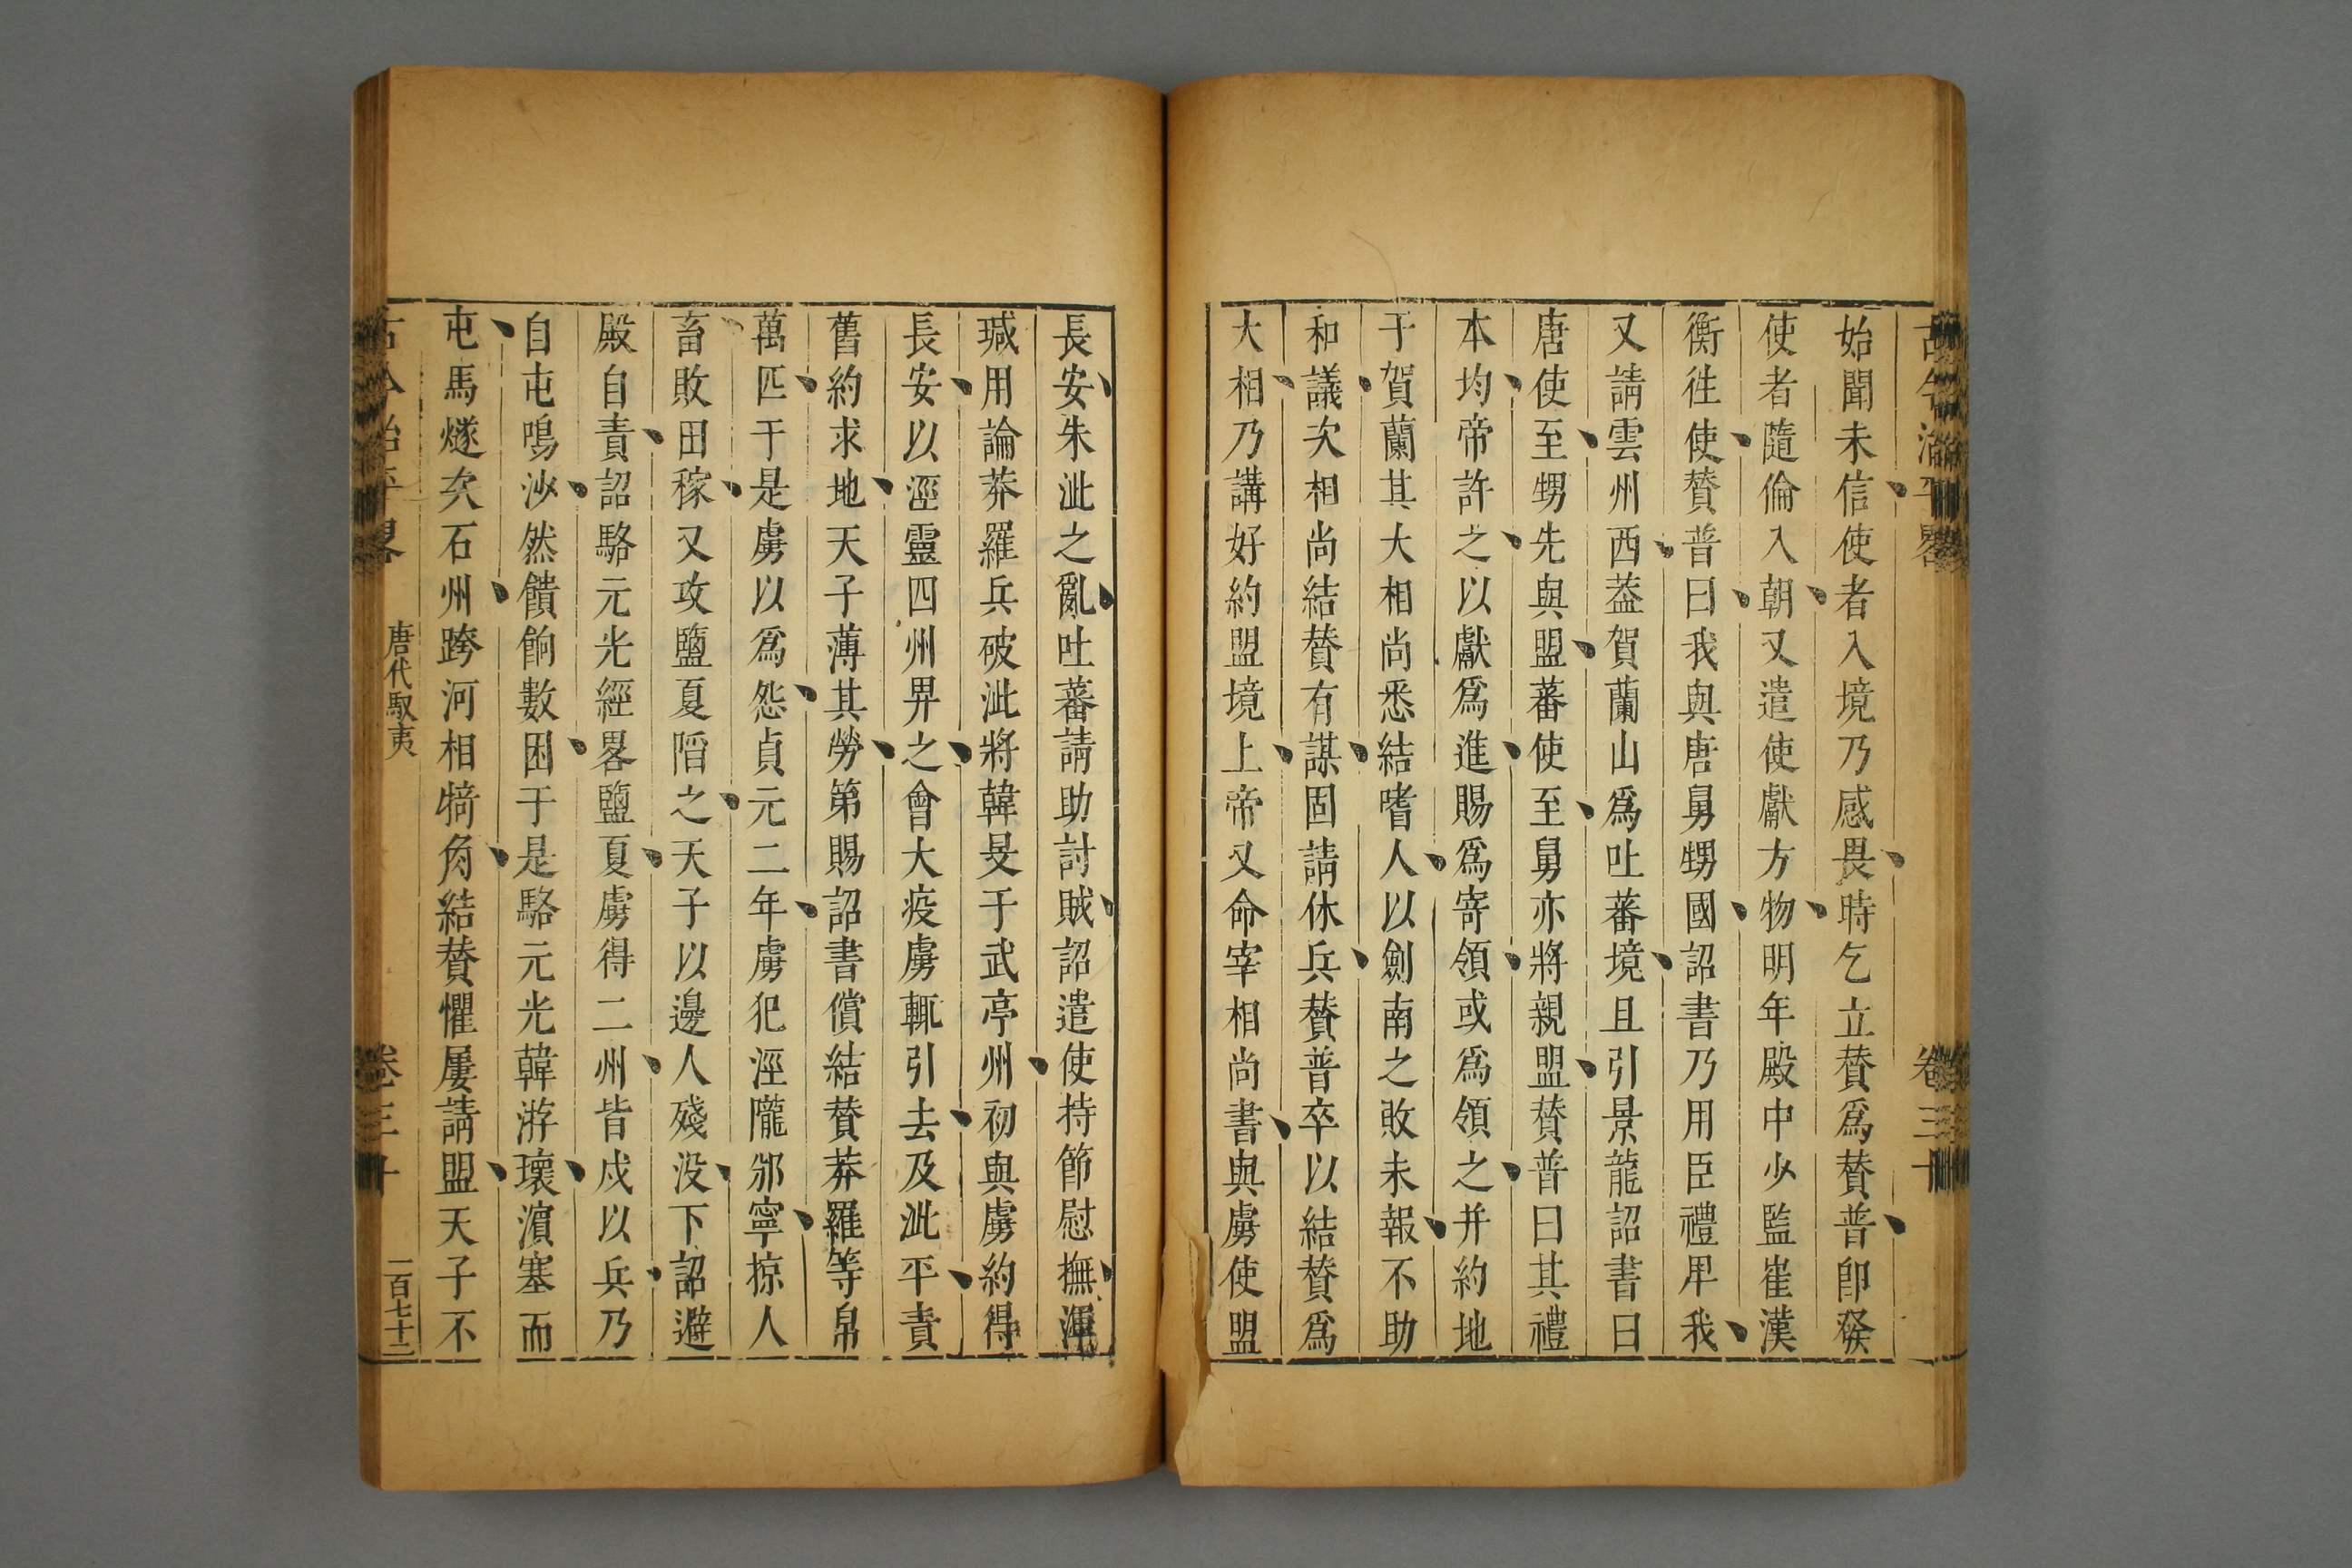 古今治平畧 卷三十
始聞未信使者入境乃感畏時乞立贊爲贊普卽發
使者隨倫入朝又遣使獻方物明年殿中少監崔漢
衡徃使贊普曰我與唐舅甥國詔書乃用臣禮卑我
又請雲州西葢賀蘭山爲吐蕃境且引景龍詔書曰
唐使至甥先與盟蕃使至舅亦將親盟贊普曰其禮
本均帝許之以獻爲進賜爲寄領或爲領之并約地
于賀蘭其大相尚悉結嗜人以劍南之敗未報不助
和議次相尚結贊有謀固請休兵贊普卒以結贊爲
大相乃講好約盟境上帝又命宰相尚書與虜使盟
長安朱泚之亂吐蕃請助討賊詔遣使持節慰撫渾
瑊用論莽羅兵破泚將韓旻于武亭州初與虜約得
長安以涇靈四州畀之會大疫虜輒引去及泚平責
舊約求地天子薄其勞第賜詔書償結贊莽羅等帛
萬匹于是虜以爲怨貞元二年虜犯涇隴邠寧掠人
畜敗田稼又攻鹽夏陷之天子以邊人殘没下詔避
殿自責詔駱元光經畧鹽夏虜得二州皆戍以兵乃
自屯鳴沙然饋餉數困于是駱元光韓游瓌濵塞而
屯馬燧次石州跨河相犄角結贊懼屢請盟天子不
古今治平畧 唐代馭夷 卷三十 一百七十二